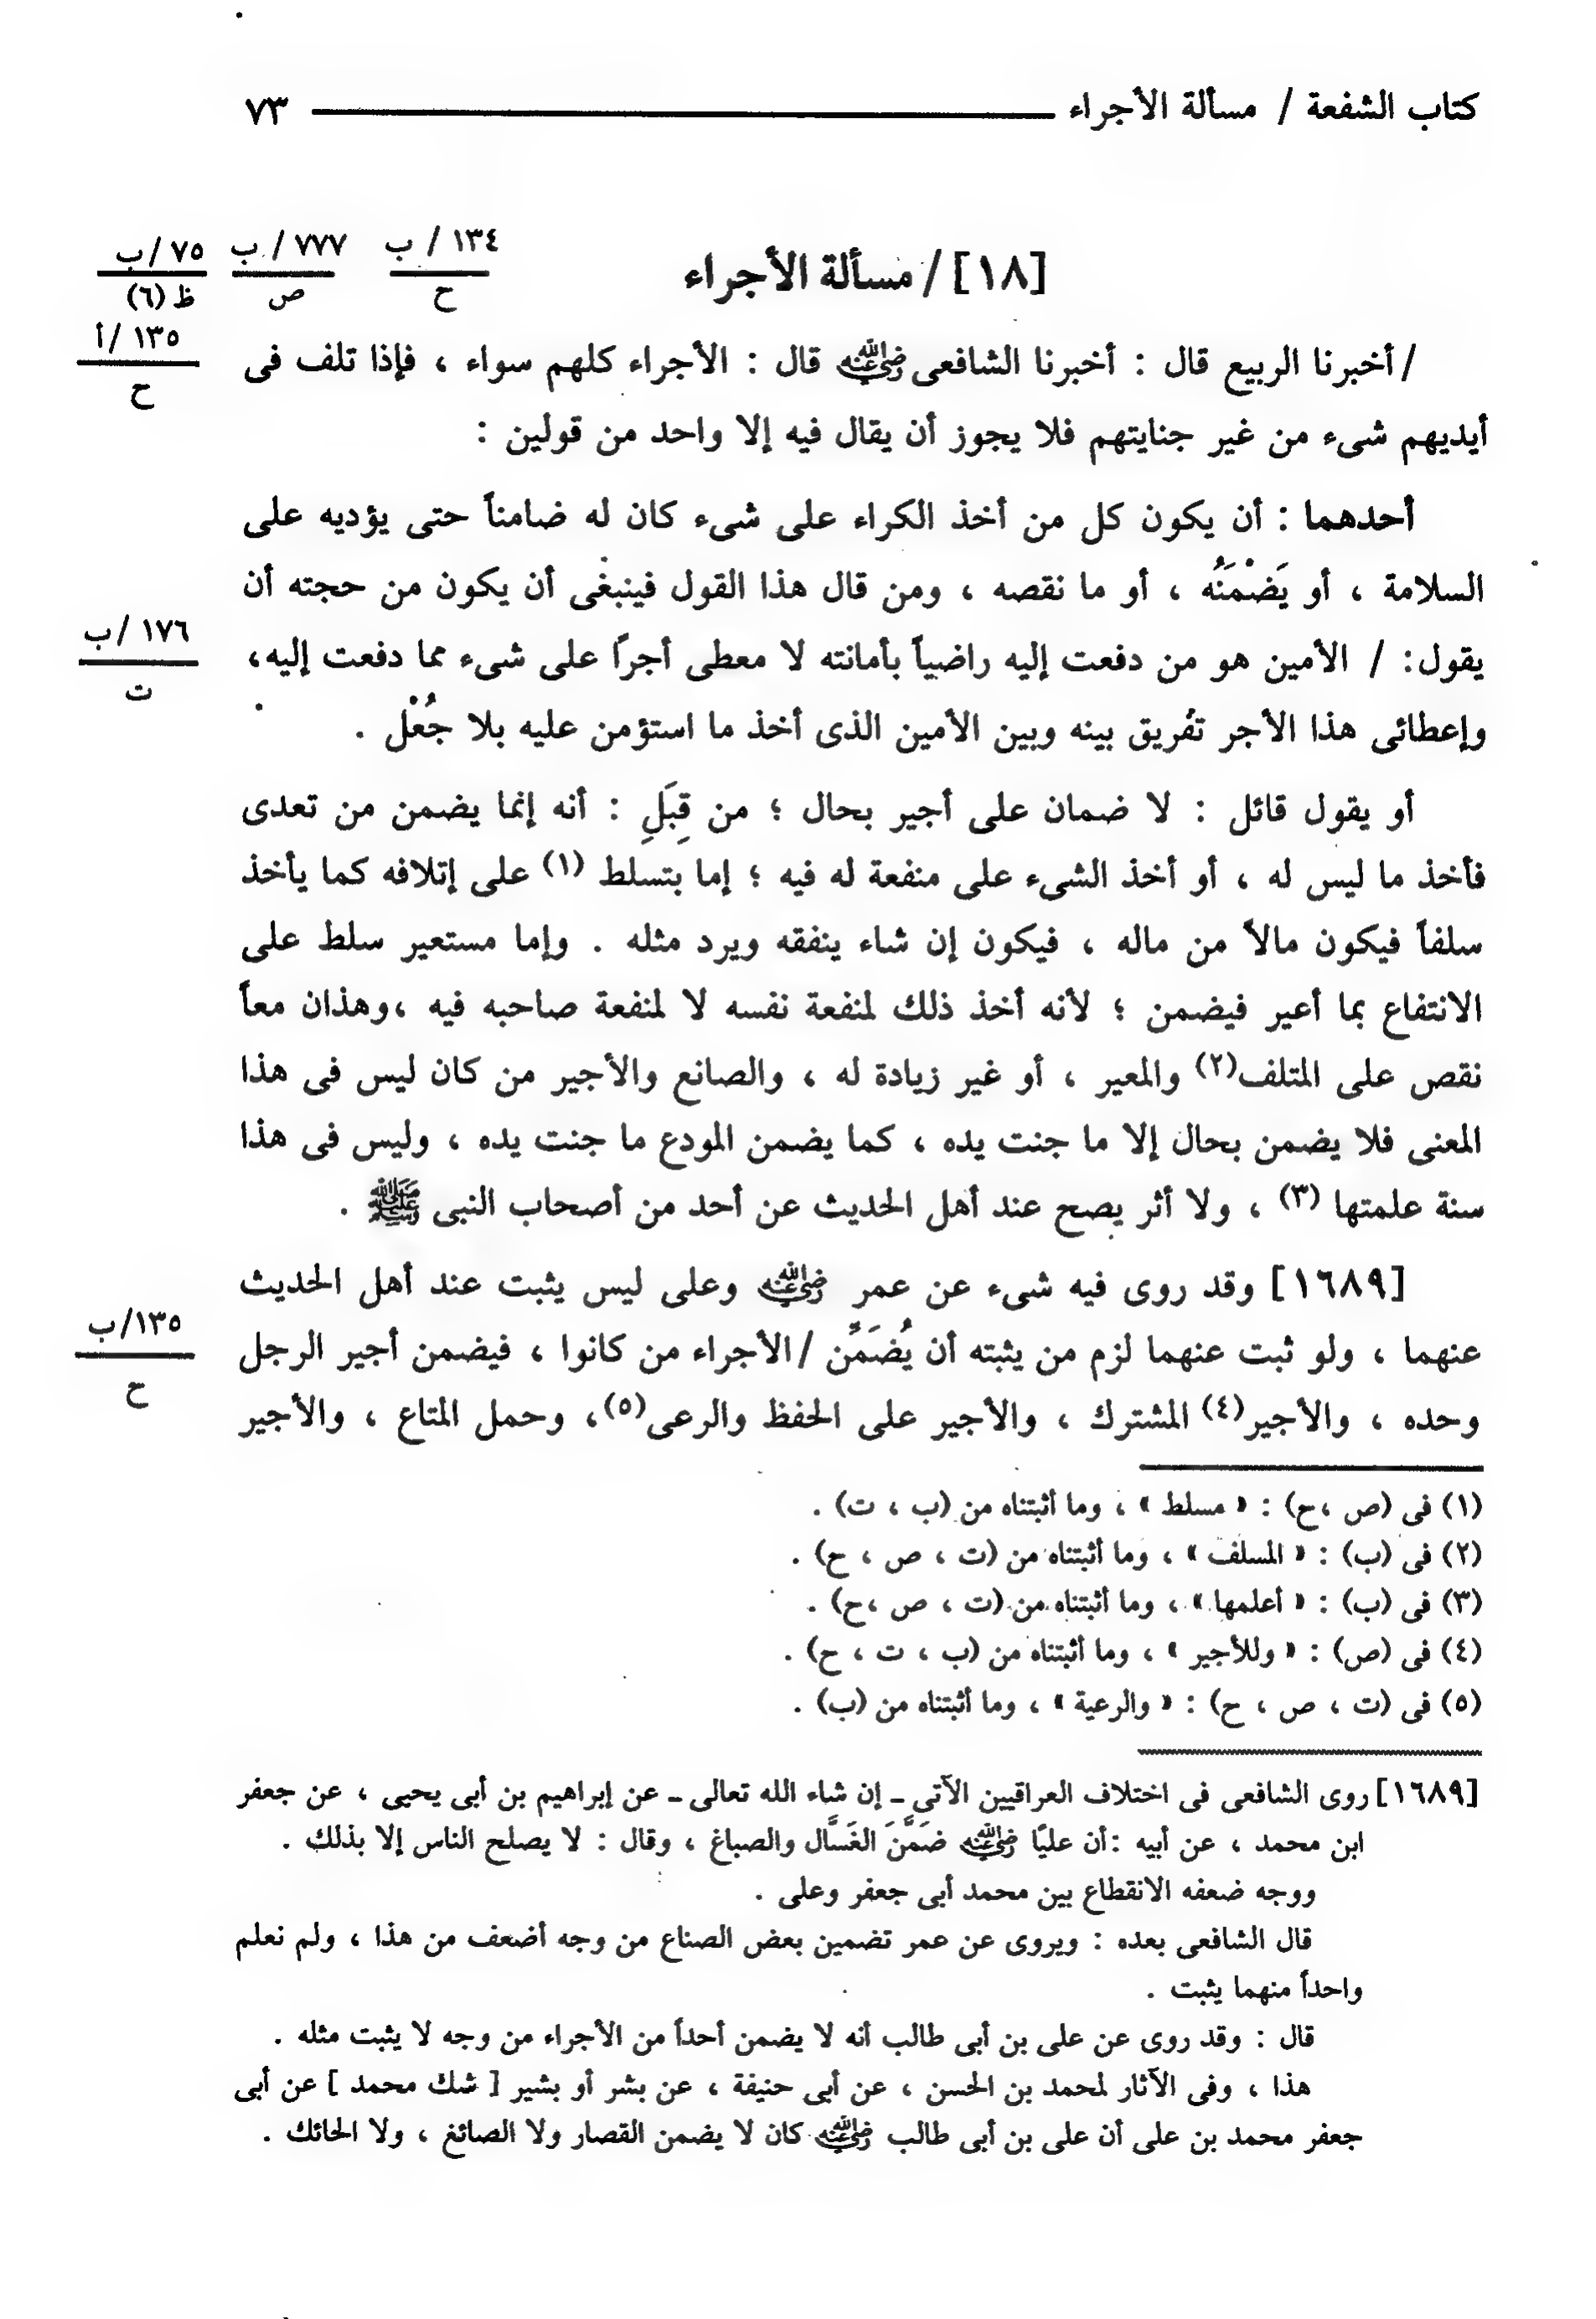 كتاب الشفعة / مسألة الأجراء ٧٣
[١٨] / مسألة الأجراء
١٣٤ / ب
ح
٧٧٧ / ب
ص
٧٥ / ب
ظ (٦)
١٣٥ / أ
ح
/ أخبرنا الربيع قال : أخبرنا الشافعى رضي الله عنه قال : الأجراء كلهم سواء ، فإذا تلف فى
أيديهم شىء من غير جنايتهم فلا يجوز أن يقال فيه إلا واحد من قولين :
أحدهما : أن يكون كل من أخذ الكراء على شىء كان له ضامناً حتى يؤديه على
السلامة ، أو يَضْمَنُه ، أو ما نقصه ، ومن قال هذا القول فينبغى أن يكون من حجته أن
يقول: / الأمين هو من دفعت إليه راضياً بأمانته لا معطى أجراً على شىء مما دفعت إليه،
١٧٦ / ب
ت
وإعطائى هذا الأجر تفريق بينه وبين الأمين الذى أخذ ما استؤمن عليه بلا جُعْل .
أو يقول قائل : لا ضمان على أجير بحال ؛ من قِبَلِ : أنه إنما يضمن من تعدى
فأخذ ما ليس له ، أو أخذ الشىء على منفعة له فيه ؛ إما بتسلط (١) على إتلافه كما يأخذ
سلفاً فيكون مالاً من ماله ، فيكون إن شاء ينفقه ويرد مثله . وإما مستعير سلط على
الانتفاع بما أعير فيضمن ؛ لأنه أخذ ذلك لمنفعة نفسه لا لمنفعة صاحبه فيه ،وهذان معاً
نقص على المتلف(٢) والمعير ، أو غير زيادة له ، والصانع والأجير من كان ليس فى هذا
المعنى فلا يضمن بحال إلا ما جنت يده ، كما يضمن المودع ما جنت يده ، وليس فى هذا
سنة علمتها (٣) ، ولا أثر يصح عند أهل الحديث عن أحد من أصحاب النبى ﷺ .
[١٦٨٩] وقد روى فيه شىء عن عمر رضي الله عنه وعلى ليس يثبت عند أهل الحديث
عنهما ، ولو ثبت عنهما لزم من يثبته أن يُضَمِّن / الأجراء من كانوا ، فيضمن أجير الرجل
١٣٥/ب
ح
وحده ، والأجير(٤) المشترك ، والأجير على الحفظ والرعى(٥)، وحمل المتاع ، والأجير
(١) فى (ص ،ح) : « مسلط » ، وما أثبتناه من (ب ، ت) .
(٢) فى (ب) : « المسلف » ، وما أثبتناه من (ت ، ص ، ح) .
(٣) فى (ب) : « أعلمها » ، وما أثبتناه من (ت ، ص ،ح) .
(٤) فى (ص) : « وللأجير » ، وما أثبتناه من (ب ، ت ، ح) .
(٥) فى (ت ، ص ، ح) : « والرعية » ، وما أثبتناه من (ب) .
[١٦٨٩] روى الشافعى فى اختلاف العراقيين الآتى ـ إن شاء الله تعالى ـ عن إبراهيم بن أبى يحيى ، عن جعفر
ابن محمد ، عن أبيه :أن عليًا رضي الله عنه ضَمَّنَ الغَسَّال والصباغ ، وقال : لا يصلح الناس إلا بذلك .
ووجه ضعفه الانقطاع بين محمد أبى جعفر وعلى .
قال الشافعى بعده : ويروى عن عمر تضمين بعض الصناع من وجه أضعف من هذا ، ولم نعلم
واحداً منهما يثبت .
قال : وقد روى عن على بن أبى طالب أنه لا يضمن أحداً من الأجراء من وجه لا يثبت مثله .
هذا ، وفى الآثار لمحمد بن الحسن ، عن أبى حنيفة ، عن بشر أو بشير [ شك محمد ] عن أبى
جعفر محمد بن على أن على بن أبى طالب رضي الله عنه كان لا يضمن القصار ولا الصائغ ، ولا الحائك .